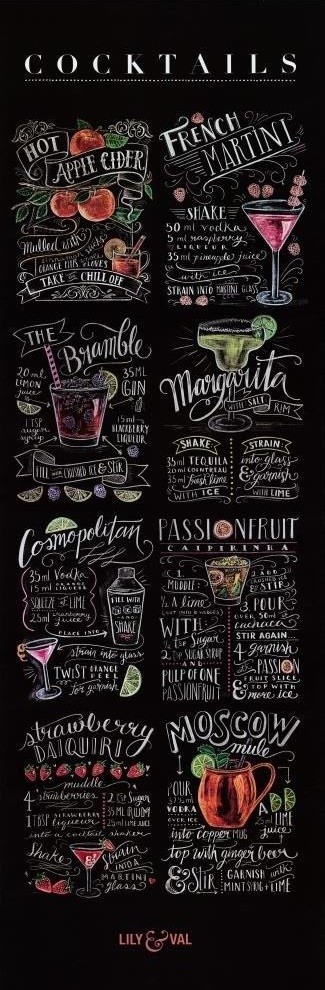 COCKTAILS
HOT
APPLE CIDER
Mulled with
ORANGE CLOVES
TAKE THE CHILL OFF
FRENCH
MARTINI
SHAKE
50 ml vodka
5 ml raspberry
LIQUEUR
35 ml pineapple juice
with ice
STRAIN INTO MARTINI GLASS
THE
Bramble
20 ml
LEMON
juice
35 ML
GIN
1 TSP
sugar
syrup
15 ml
BLACKBERRY
LIQUEUR
FILL with CRUSHED ICE & STIR
Margarita
WITH SALT RIM
SHAKE
35 ml TEQUILA
20 ml COINTREAU
35 ml fresh lime
WITH ICE
STRAIN
into glass
& garnish
WITH LIME
Cosmopolitan
35 ml Vodka
15 ml LIQUEUR
SQUEEZE OF LIME
25 ml cranberry
juice
PLACE INTO
FILL WITH
ICE
AND
SHAKE
Strain into glass
TWIST ORANGE
PEEL
for garnish
PASSIONFRUIT
CAIPIRINHA
1.
MUDDLE:
½ A lime
WITH
1 tsp Sugar
2 tsp SUGAR SYRUP
AND
PULP OF ONE
PASSIONFRUIT
2. ADD
STIR
3. POUR
OVER 50 ml
cachaca
STIR AGAIN
4. garnish
WITH
PASSION
FRUIT SLICE
& TOP WITH
more ice
strawberry
DAIQUIRI
muddle
4 strawberries
1 TBSP STRAWBERRY
liqueur
2 tsp Sugar
35 ML RUM
25 ml LIME JUICE
into a cocktail shaker
Shake
&
Strain
INTO A
MARTINI
glass
MOSCOW
mule
POUR
VODKA
OVER ICE
LIME
juice
into COPPER MUG
top with ginger beer
& Stir
GARNISH with
MINT SPRIG + LIME
LILY & VAL